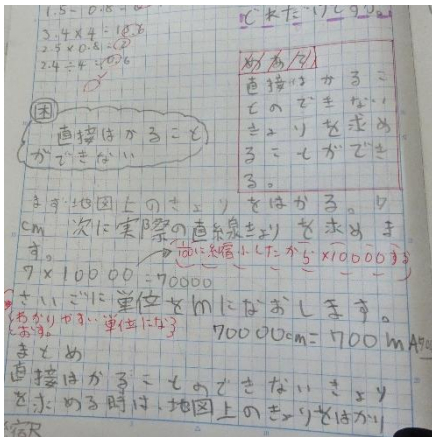 3.4×4=13.6
2.5×0.8=2
2.4÷4=0.6
めあて
直接はかるこ
とのできない
きょりを求め
ることができ
る。
困
直接はかること
ができない
まず地図上のきょりをはかる。7
cm 次に実際の直線きょりを求めま
す。
に縮小したから×10000する
7×10000=70000
さいごに単位をmになおします。
わかりやすい単位になおす。
70000cm=700m
まとめ
直接はかることのできないきょり
を求める時は、地図上のきょりをはかり